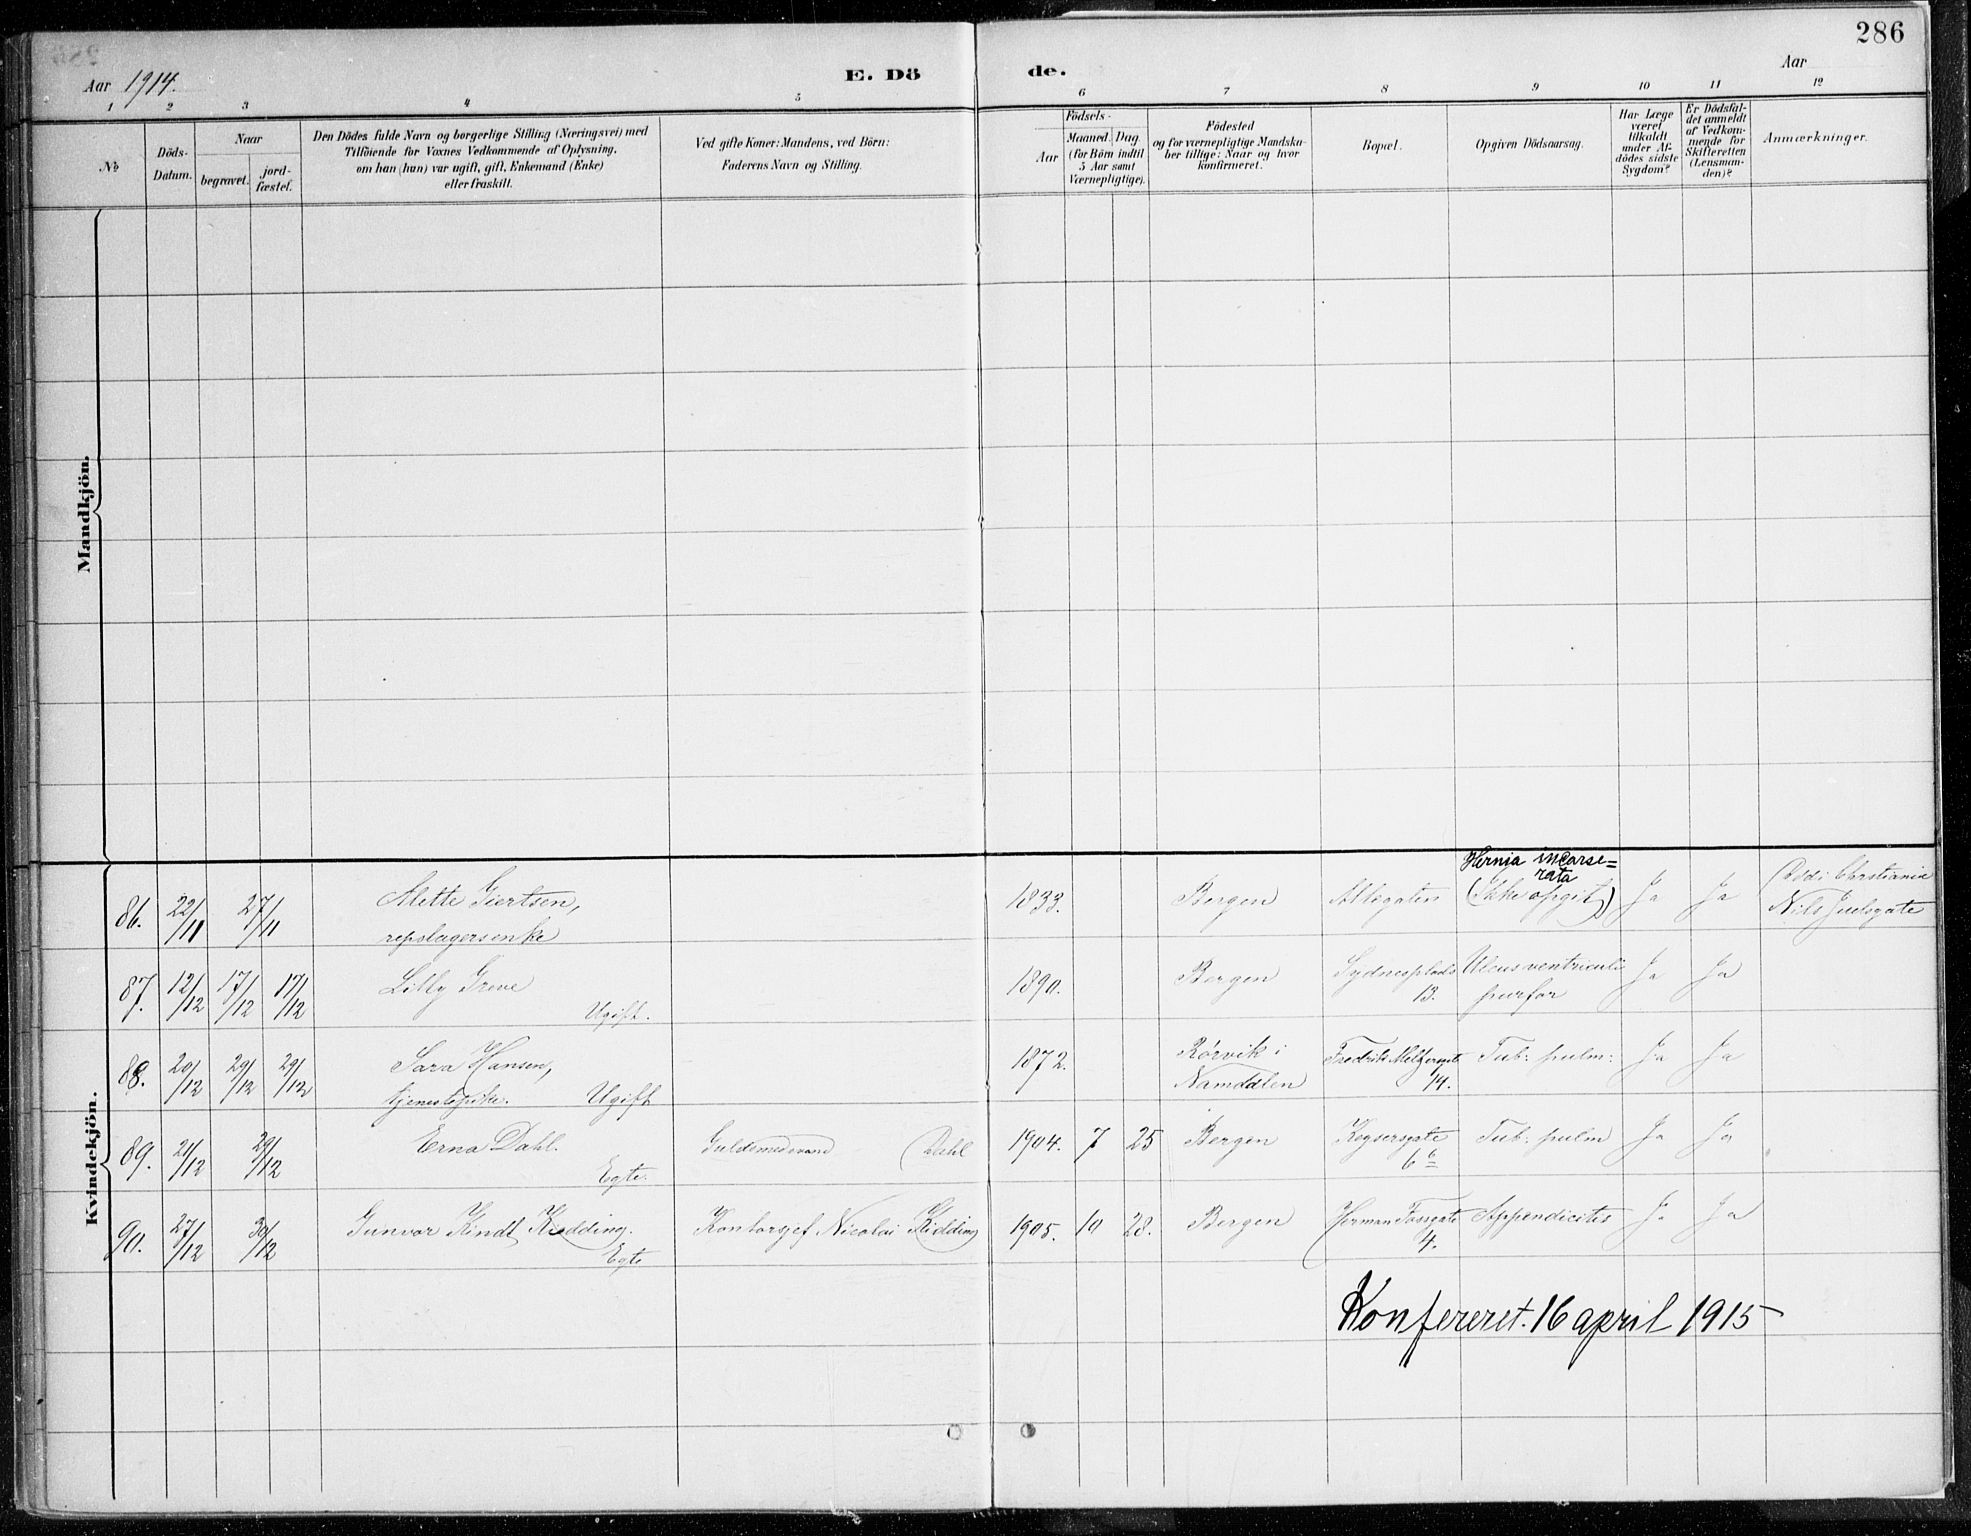 286
Aar 1914.
E. Dö
de.
Aar
1 2 3 4 5 6 7 8 9 10 11 12
№
Döds-
Datum.
Naar
begravet.
jord-
fæstet.
Den Dödes fulde Navn og borgerlige Stilling (Næringsvei) med
Tilföiende for Voxnes Vedkommende af Oplysning,
om han (hun) var ugift, gift, Enkemand (Enke)
eller fraskilt.
Ved gifte Koner: Mandens, ved Börn:
Faderens Navn og Stilling.
Födsels-
Aar
Maaned. Dag.
(for Börn indtil
5 Aar samt
Værnepligtige).
Födested
og for værnepligtige Mandska-
ber tillige: Naar og hvor
konfirmeret.
Bopæl.
Opgiven Dödsaarsag.
Har Læge
været
tilkaldt
under Af-
dödes sidste
Sygdom?
Er Dödsfal-
det anmeldt
af Vedkom-
mende for
Skifteretten
(Lensman-
den)?
Anmærkninger.
Mandkjön.
Kvindekjön.
Hernia incarse=
rata
86. 22/11 27/11 Mette Giertsen, 1833. Bergen Allégaten (Ikke opgit) Ja Ja Død i Christiania
repslagersenke Nils Juelsgate
87. 12/12 17/12 17/12 Lilly Greve 1890. Bergen Sydnesplads Ulcus ventriculi Ja Ja
Ugift. 13. purfor
88. 20/12 29/12 29/12 Sara Hansen, 1872. Rörvik i Fredrik Meltzersgate Tub: pulm: Ja Ja
tjenestepike. Ugift Namdalen 14.
89. 24/12 29/12 Erna Dahl. Guldsmedsvend Dahl 1904. 7 25 Bergen Keysersgate Tub: pulm Ja Ja
Egte. 6
90. 27/12 30/12 Gunvor Kindt Kedding. Kontorsjef Nicolai Kidding 1905. 10 28. Bergen Herman Fossgate Appendicites Ja Ja
Egte 4.
Konfereret. 16 april 1915